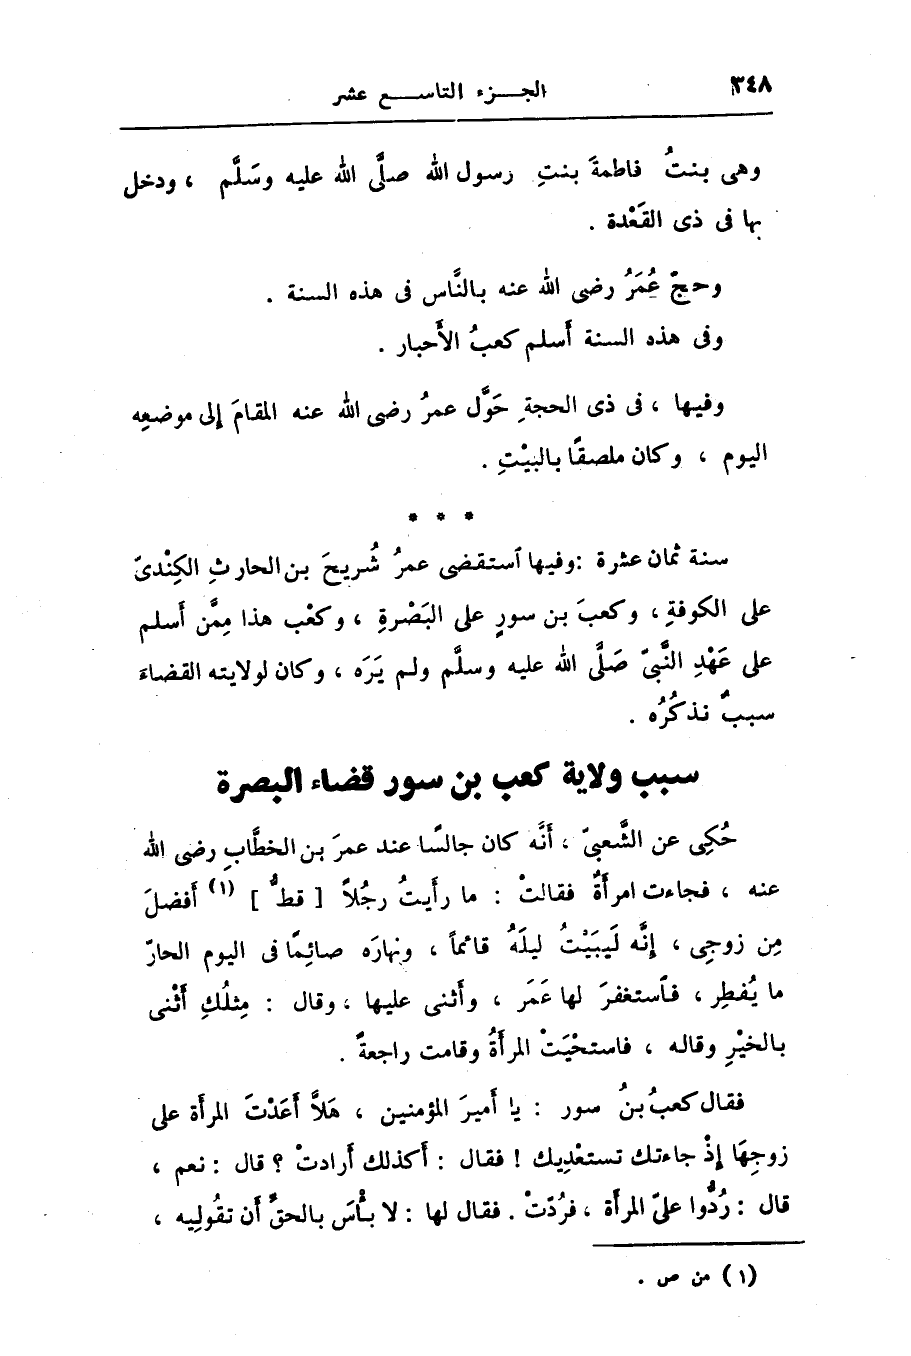 ٣٤٨
الجـــزء التاســـع عشر
وهى بنتُ فاطمةَ بنتِ رسول الله صلَّى الله عليه وسَلَّم ، ودخل
بها فى ذى القَعْدة .
وحجّ عُمَرُ رضى الله عنه بالنَّاس فى هذه السنة .
وفى هذه السنة أَسلم كعبُ الأَحبار .
وفيها ، فى ذى الحجةِ حَوَّل عمرُ رضى الله عنه المقامَ إلى موضعِه
اليوم ، وكان ملصقًا بالبيْتِ .
* * *
سنة ثمان عشرة :وفيها ٱستقضى عمرُ شُريحَ بن الحارثِ الكِنْدىّ
على الكوفةِ ، وكعبَ بن سورٍ على البَصْرةِ ، وكعْب هذا مِمَّن أَسلم
على عَهْدِ النَّبىّ صَلَّى الله عليه وسلَّم ولم يَرَه ، وكان لولايته القضاءَ
سببٌ نذكُرُه .
سبب ولاية كعب بن سور قضاء البصرة
حُكِى عن الشَّعبىّ ، أَنَّه كان جالسًا عند عمرَ بن الخطَّابِ رضى الله
عنه ، فجاءت امرأَةٌ فقالتْ : ما رأَيتُ رجُلاً [ قطُّ ] (١) أَفضلَ
مِن زوجِى ، إِنَّه لَيبَيْتُ ليلَهُ قائماً ، ونهارَه صائِمًا فى اليوم الحارّ
ما يُفطِر ، فٱستغفرَ لها عَمَر ، وأَثنى عليها ، وقال : مِثلُكِ أَثْنى
بالخيْرِ وقاله ، فاستحْيَتْ المرأَةُ وقامت راجعةً .
فقال كعبُ بنُ سور : يا أَميرَ المؤمنين ، هَلاَّ أَعَدْتَ المرأَة على
زوجِهَا إِذْ جاءتك تستعْدِيك ! فقال : أَكذلك أَرادتْ ؟ قال : نعم ،
قال : رُدُّوا علىّ المرأَة ، فرُدّتْ . فقال لها : لا بأْسَ بالحقِّ أَن تقُولِيه ،
(١) من ص .